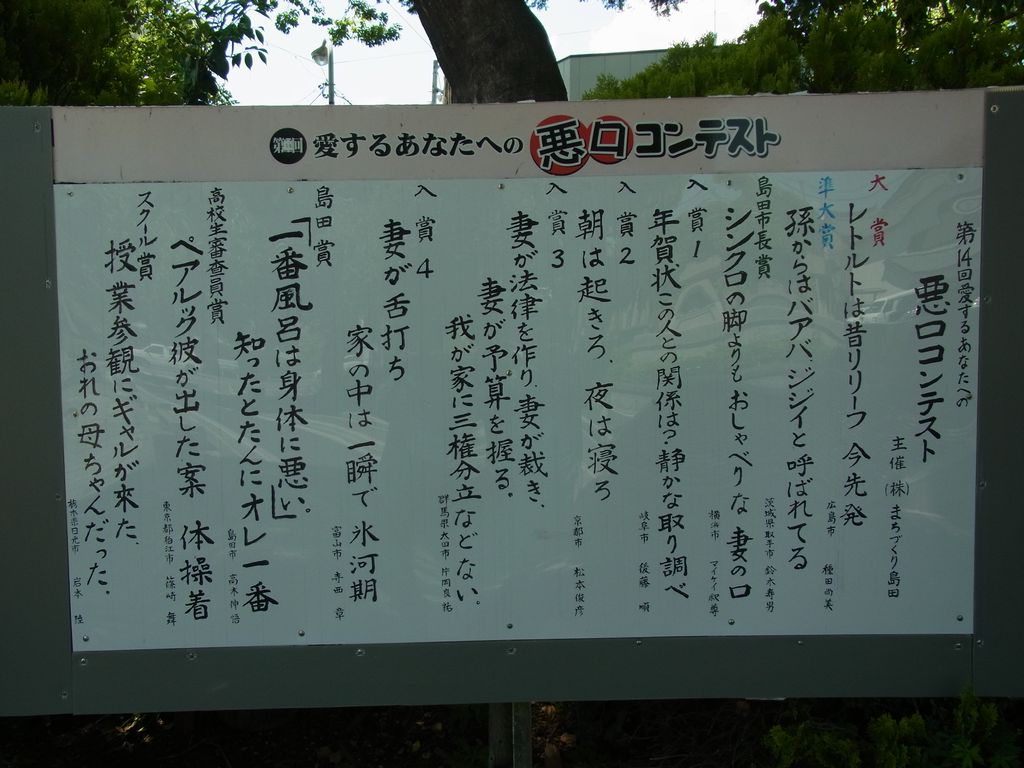 愛するあなたへの 悪口コンテスト
第14回愛するあなたへの
悪口コンテスト
主催(株)まちづくり島田
大賞
レトルトは昔リリーフ 今先発
広島市 種田尚美
準大賞
孫からはバアバ、ジジイと呼ばれてる
茨城県取手市 鈴木寿男
島田市長賞
シンクロの脚よりも おしゃべりな 妻の口
横浜市 マイケイ釈尊
入賞1
年賀状この人との関係は?静かな取り調べ
岐阜市 後藤順
入賞2
朝は起きろ、夜は寝ろ
京都市 松本俊彦
入賞3
妻が法律を作り、妻が裁き、
妻が予算を握る。
我が家に三権分立などない。
群馬県太田市 片岡良祐
入賞4
妻が舌打ち
家の中は一瞬で氷河期
富山市 寺西章
島田賞
「一番風呂は身体に悪い」。
知ったとたんにオレ一番
島田市 高木伸悟
高校生審査員賞
ペアルック彼が出した案 体操着
東京都狛江市 篠崎舞
スクール賞
授業参観にギャルが来た、
おれの母ちゃんだった。
栃木県日光市 岩本陸